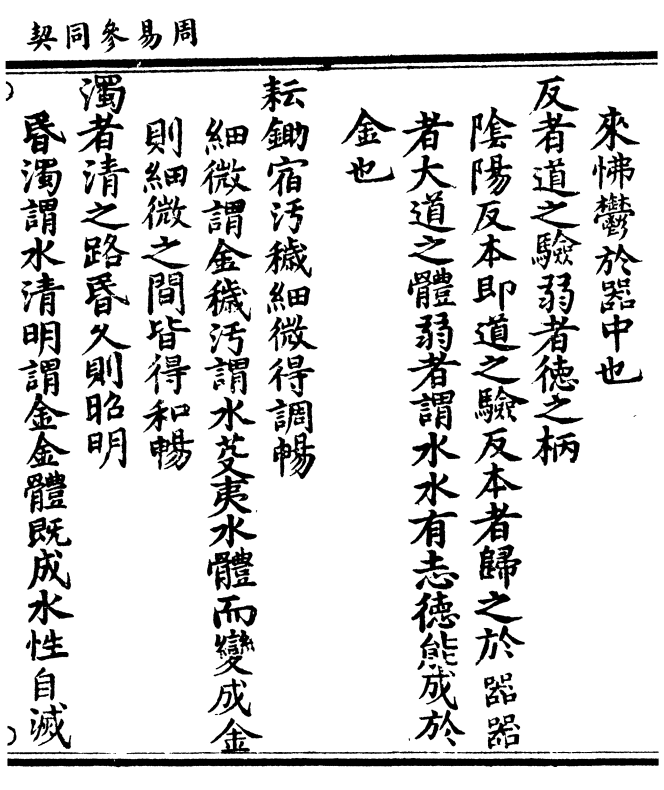 周易參同契
來怫鬱於器中也
反者道之驗弱者德之柄
陰陽反本即道之驗反本者歸之於器器
者大道之體弱者謂水水有志德能成於
金也
耘鋤宿汚穢細微得調暢
細微謂金穢汚謂水芟夷水體而變成金
則細微之間皆得和暢
濁者清之路昏久則昭明
昏濁謂水清明謂金金體既成水性自滅